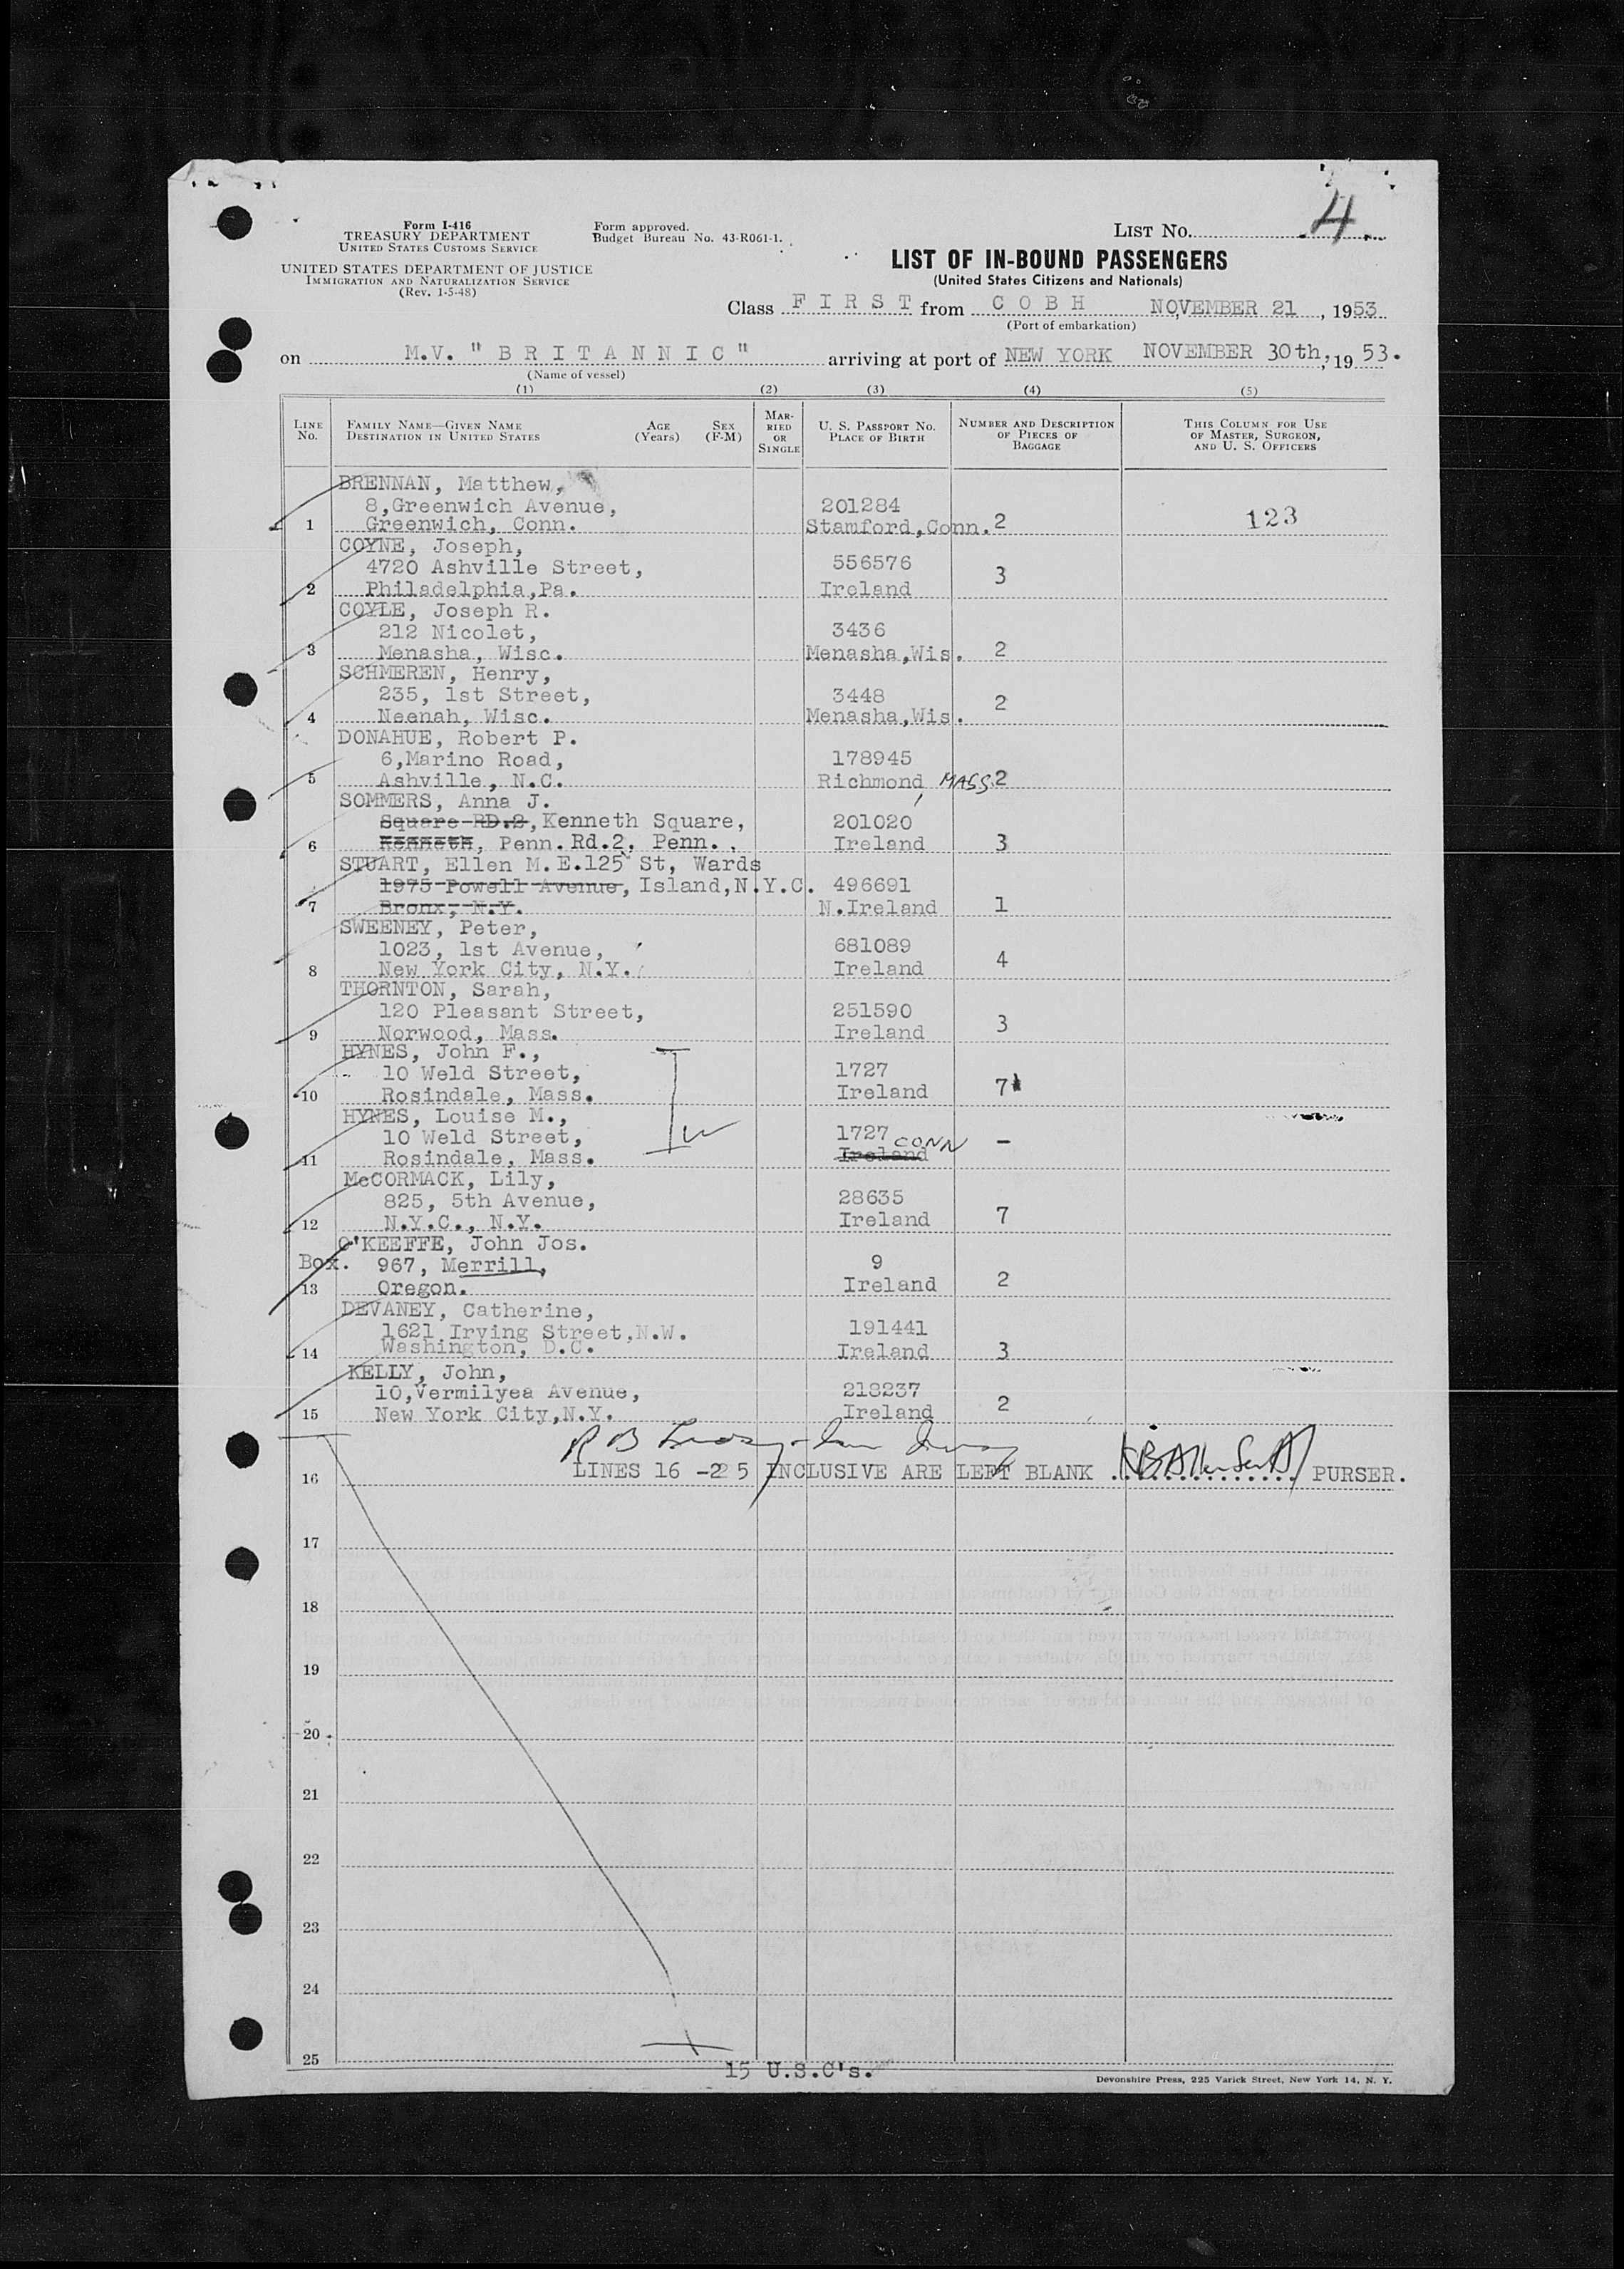 Form I-416
TREASURY DEPARTMENT
UNITED STATES CUSTOMS SERVICE
UNITED STATES DEPARTMENT OF JUSTICE
IMMIGRATION AND NATURALIZATION SERVICE
(Rev. 1-5-48)
Form approved.
Budget Bureau No. 43-R061-1.
LIST NO. 4
LIST OF IN-BOUND PASSENGERS
(United States Citizens and Nationals)
Class FIRST from COBH NOVEMBER 21, 1953
(Port of embarkation)
on M.V. "BRITANNIC" arriving at port of NEW YORK NOVEMBER 30th, 1953.
(Name of vessel)
(1) (2) (3) (4) (5)
LINE NO.
FAMILY NAME—GIVEN NAME
DESTINATION IN UNITED STATES
AGE (Years)
SEX (F-M)
MARRIED OR SINGLE
U. S. PASSPORT NO.
PLACE OF BIRTH
NUMBER AND DESCRIPTION OF PIECES OF BAGGAGE
THIS COLUMN FOR USE OF MASTER, SURGEON, AND U. S. OFFICERS
BRENNAN, Matthew,
8,Greenwich Avenue, 201284
1 Greenwich, Conn. Stamford,Conn. 2 123
COYNE, Joseph,
4720 Ashville Street, 556576
2 Philadelphia,Pa. Ireland 3
COYLE, Joseph R.
212 Nicolet, 3436
3 Menasha, Wisc. Menasha,Wis. 2
SCHMEREN, Henry,
235, 1st Street, 3448
4 Neenah, Wisc. Menasha,Wis. 2
DONAHUE, Robert P.
6,Marino Road, 178945
5 Ashville, N.C. Richmond, MASS. 2
SOMMERS, Anna J.
Square RD.2, Kenneth Square, 201020
6 Kenneth, Penn. Rd.2, Penn. Ireland 3
STUART, Ellen M. E.125 St, Wards
1975 Powell Avenue, Island,N.Y.C. 496691
7 Bronx, N.Y. N.Ireland 1
SWEENEY, Peter,
1023, 1st Avenue, 681089
8 New York City, N.Y. Ireland 4
THORNTON, Sarah,
120 Pleasant Street, 251590
9 Norwood, Mass. Ireland 3
HYNES, John F.,
10 Weld Street, 1727
10 Rosindale, Mass. Ireland 7
HYNES, Louise M.,
10 Weld Street, 1727 CONN
11 Rosindale, Mass. Ireland -
McCORMACK, Lily,
825, 5th Avenue, 28635
12 N.Y.C., N.Y. Ireland 7
O'KEEFFE, John Jos.
Box. 967, Merrill, 9
13 Oregon. Ireland 2
DEVANEY, Catherine,
1621 Irving Street,N.W. 191441
14 Washington, D.C. Ireland 3
KELLY, John,
10,Vermilyea Avenue, 218237
15 New York City,N.Y. Ireland 2
16 LINES 16 -225 INCLUSIVE ARE LEFT BLANK PURSER.
17
18
19
20
21
22
23
24
25
15 U.S.C's.
Devonshire Press, 225 Varick Street, New York 14, N. Y.